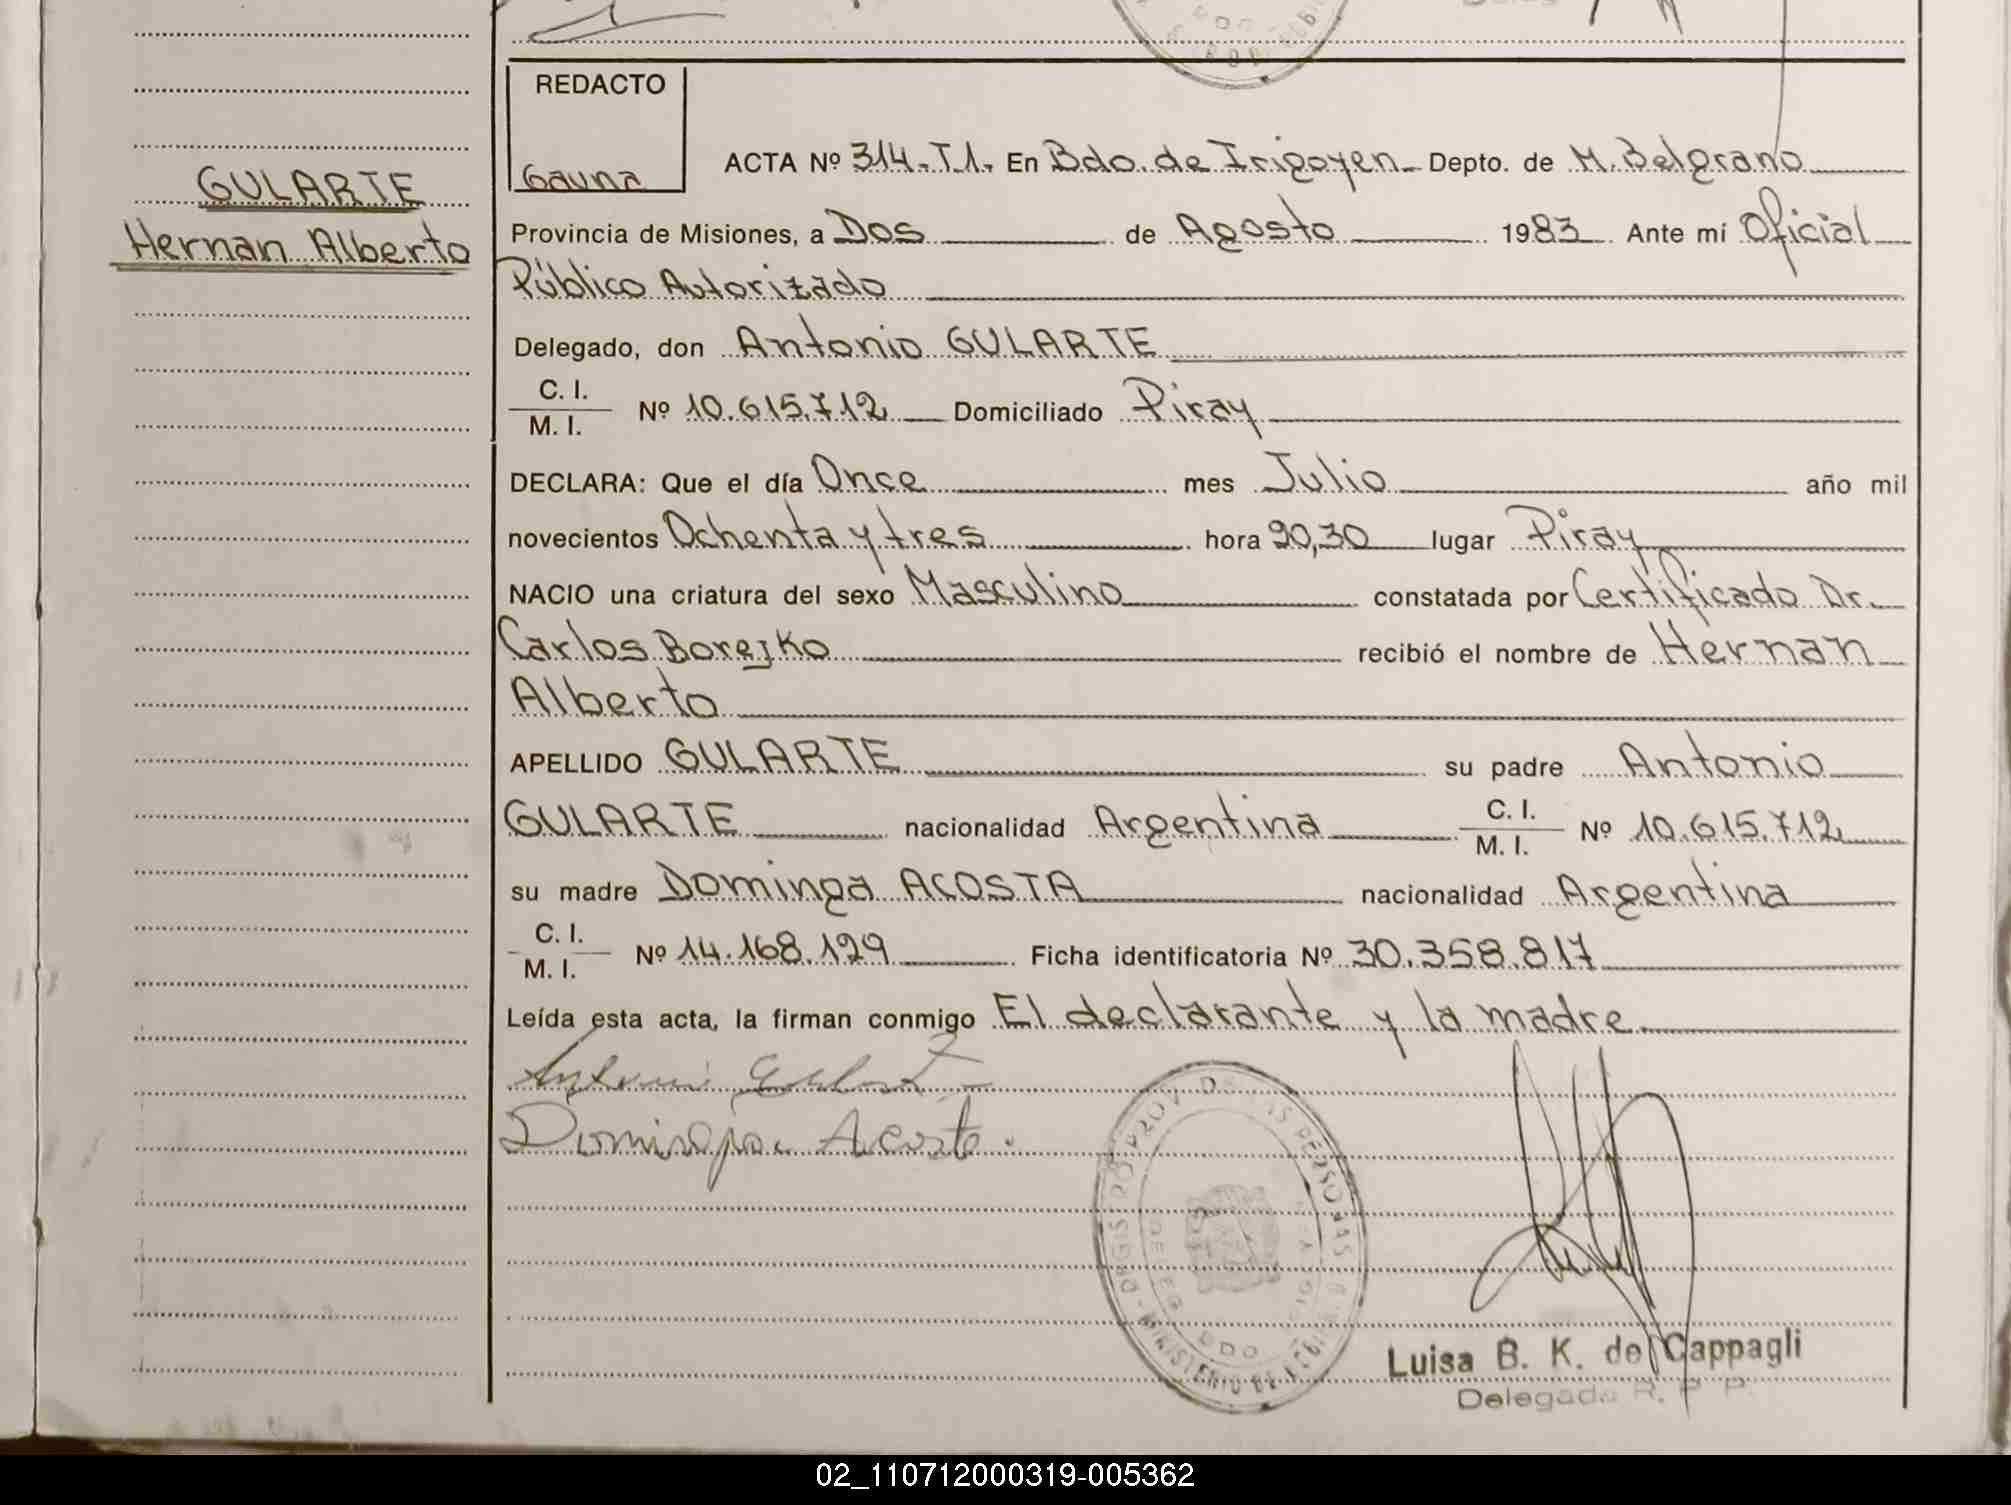 REDACTO
Gauna
ACTA Nº 314-T1- En Bdo. de Irigoyen - Depto. de M. Belgrano
GULARTE
Hernan Alberto
Provincia de Misiones, a Dos de Agosto 1983 Ante mí Oficial
Público Autorizado
Delegado, don Antonio GULARTE
C. I.
M. I. Nº 10.615.712 Domiciliado Piray
DECLARA: Que el día Once mes Julio año mil
novecientos Ochenta y tres hora 20,30 lugar Piray
NACIO una criatura del sexo Masculino constatada por Certificado Dr.
Carlos Borejko recibió el nombre de Hernan
Alberto
APELLIDO GULARTE su padre Antonio
GULARTE nacionalidad Argentina C. I. M. I. Nº 10.615.712
su madre Dominga ACOSTA nacionalidad Argentina
C. I.
M. I. Nº 14.168.129 Ficha identificatoria Nº 30.358.817
Leída esta acta, la firman conmigo El declarante y la madre
Antonio Gularte
Dominga Acosta.
Luisa B. K. de Cappagli
Delegada R. P. P.
02_110712000319-005362